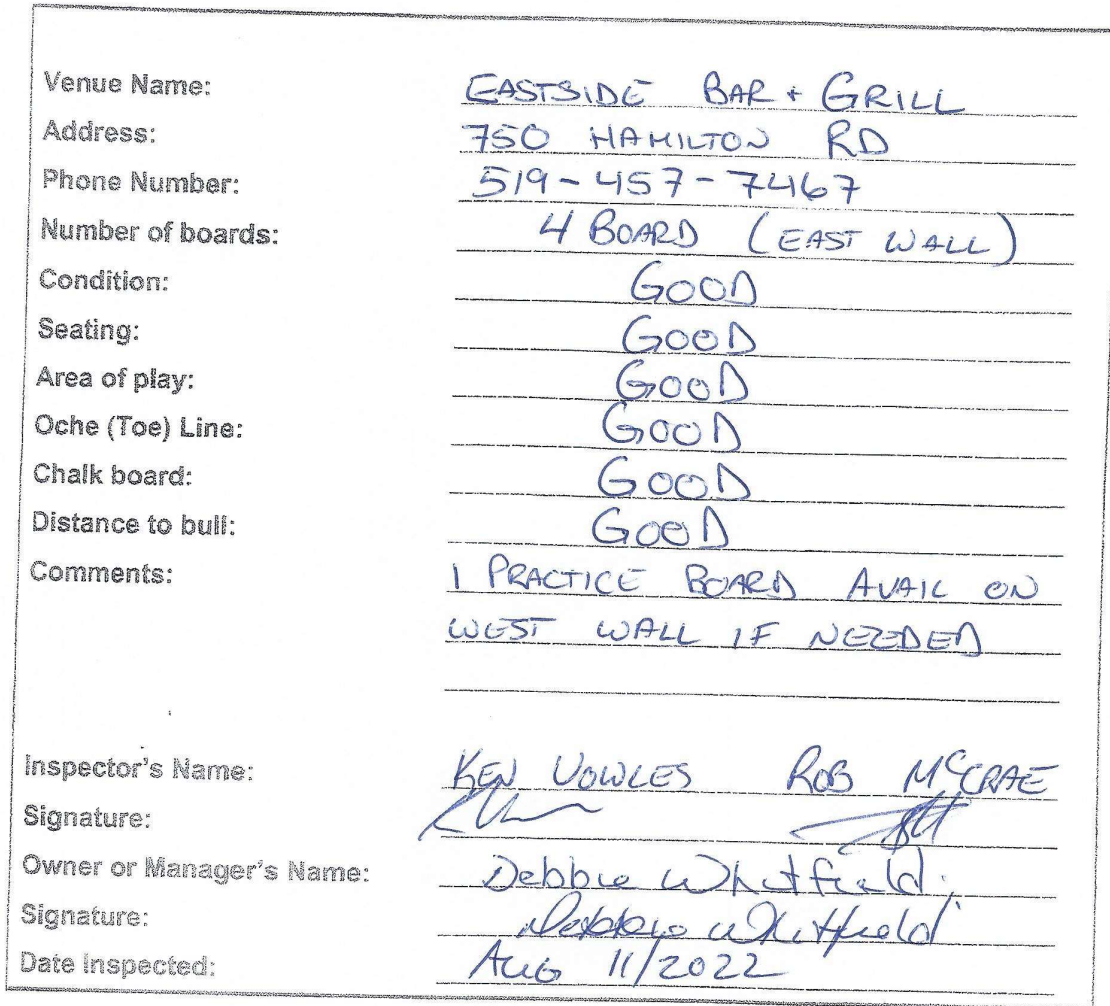 Venue Name: EASTSIDE BAR + GRILL
Address: 750 HAMILTON RD
Phone Number: 519-457-7467
Number of boards: 4 BOARD (EAST WALL)
Condition: GOOD
Seating: GOOD
Area of play: GOOD
Oche (Toe) Line: GOOD
Chalk board: GOOD
Distance to bull: GOOD
Comments: 1 PRACTICE BOARD AVAIL ON
WEST WALL IF NEEDED
Inspector's Name: KEN VOWLES ROB McCRAE
Signature:
Owner or Manager's Name: Debbie Whitfield
Signature: Debbie Whitfield
Date Inspected: AUG 11/2022